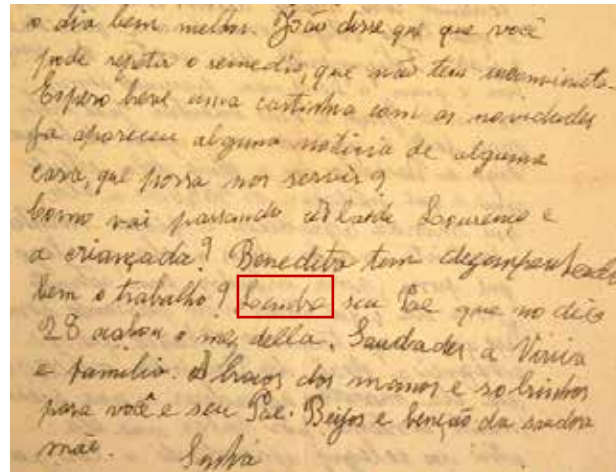 o dia bem melhor. João disse que que você
pode repetir o remedio, que não tem inconveniente.
Espero breve uma cartinha com as novidades
Ja apareceu alguma noticia de alguma
casa, que possa nos servir?
Como vai passando Lourenço e
a criançada? Benedita tem desempenhado
bem o trabalho? Lembre seu Pae que no dia
28 acabou o mez della. Saudades a
e familia. Abraços dos manos e sobrinhos
para você e seu Pae. Beijos e benção da saudosa
mãe.